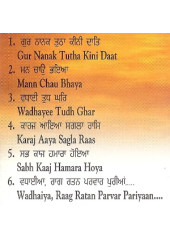 1. ਗੁਰ ਨਾਨਕ ਤੁਠਾ ਕੀਨੀ ਦਾਤਿ
Gur Nanak Tutha Kini Daat
2. ਮਨ ਚਾਉ ਭਇਆ
Mann Chau Bhaya
3. ਵਧਾਈ ਤੁਧ ਘਰਿ
Wadhayee Tudh Ghar
4. ਕਾਰਜ ਆਇਆ ਸਗਲਾ ਰਾਸਿ
Karaj Aaya Sagla Raas
5. ਸਭ ਕਾਜ ਹਮਾਰਾ ਹੋਇਆ
Sabh Kaaj Hamara Hoya
6. ਵਧਾਈਆ, ਰਾਗ ਰਤਨ ਪਰਵਾਰ ਪਰੀਆਂ....
Wadhaiya, Raag Ratan Parvar Pariyaan....